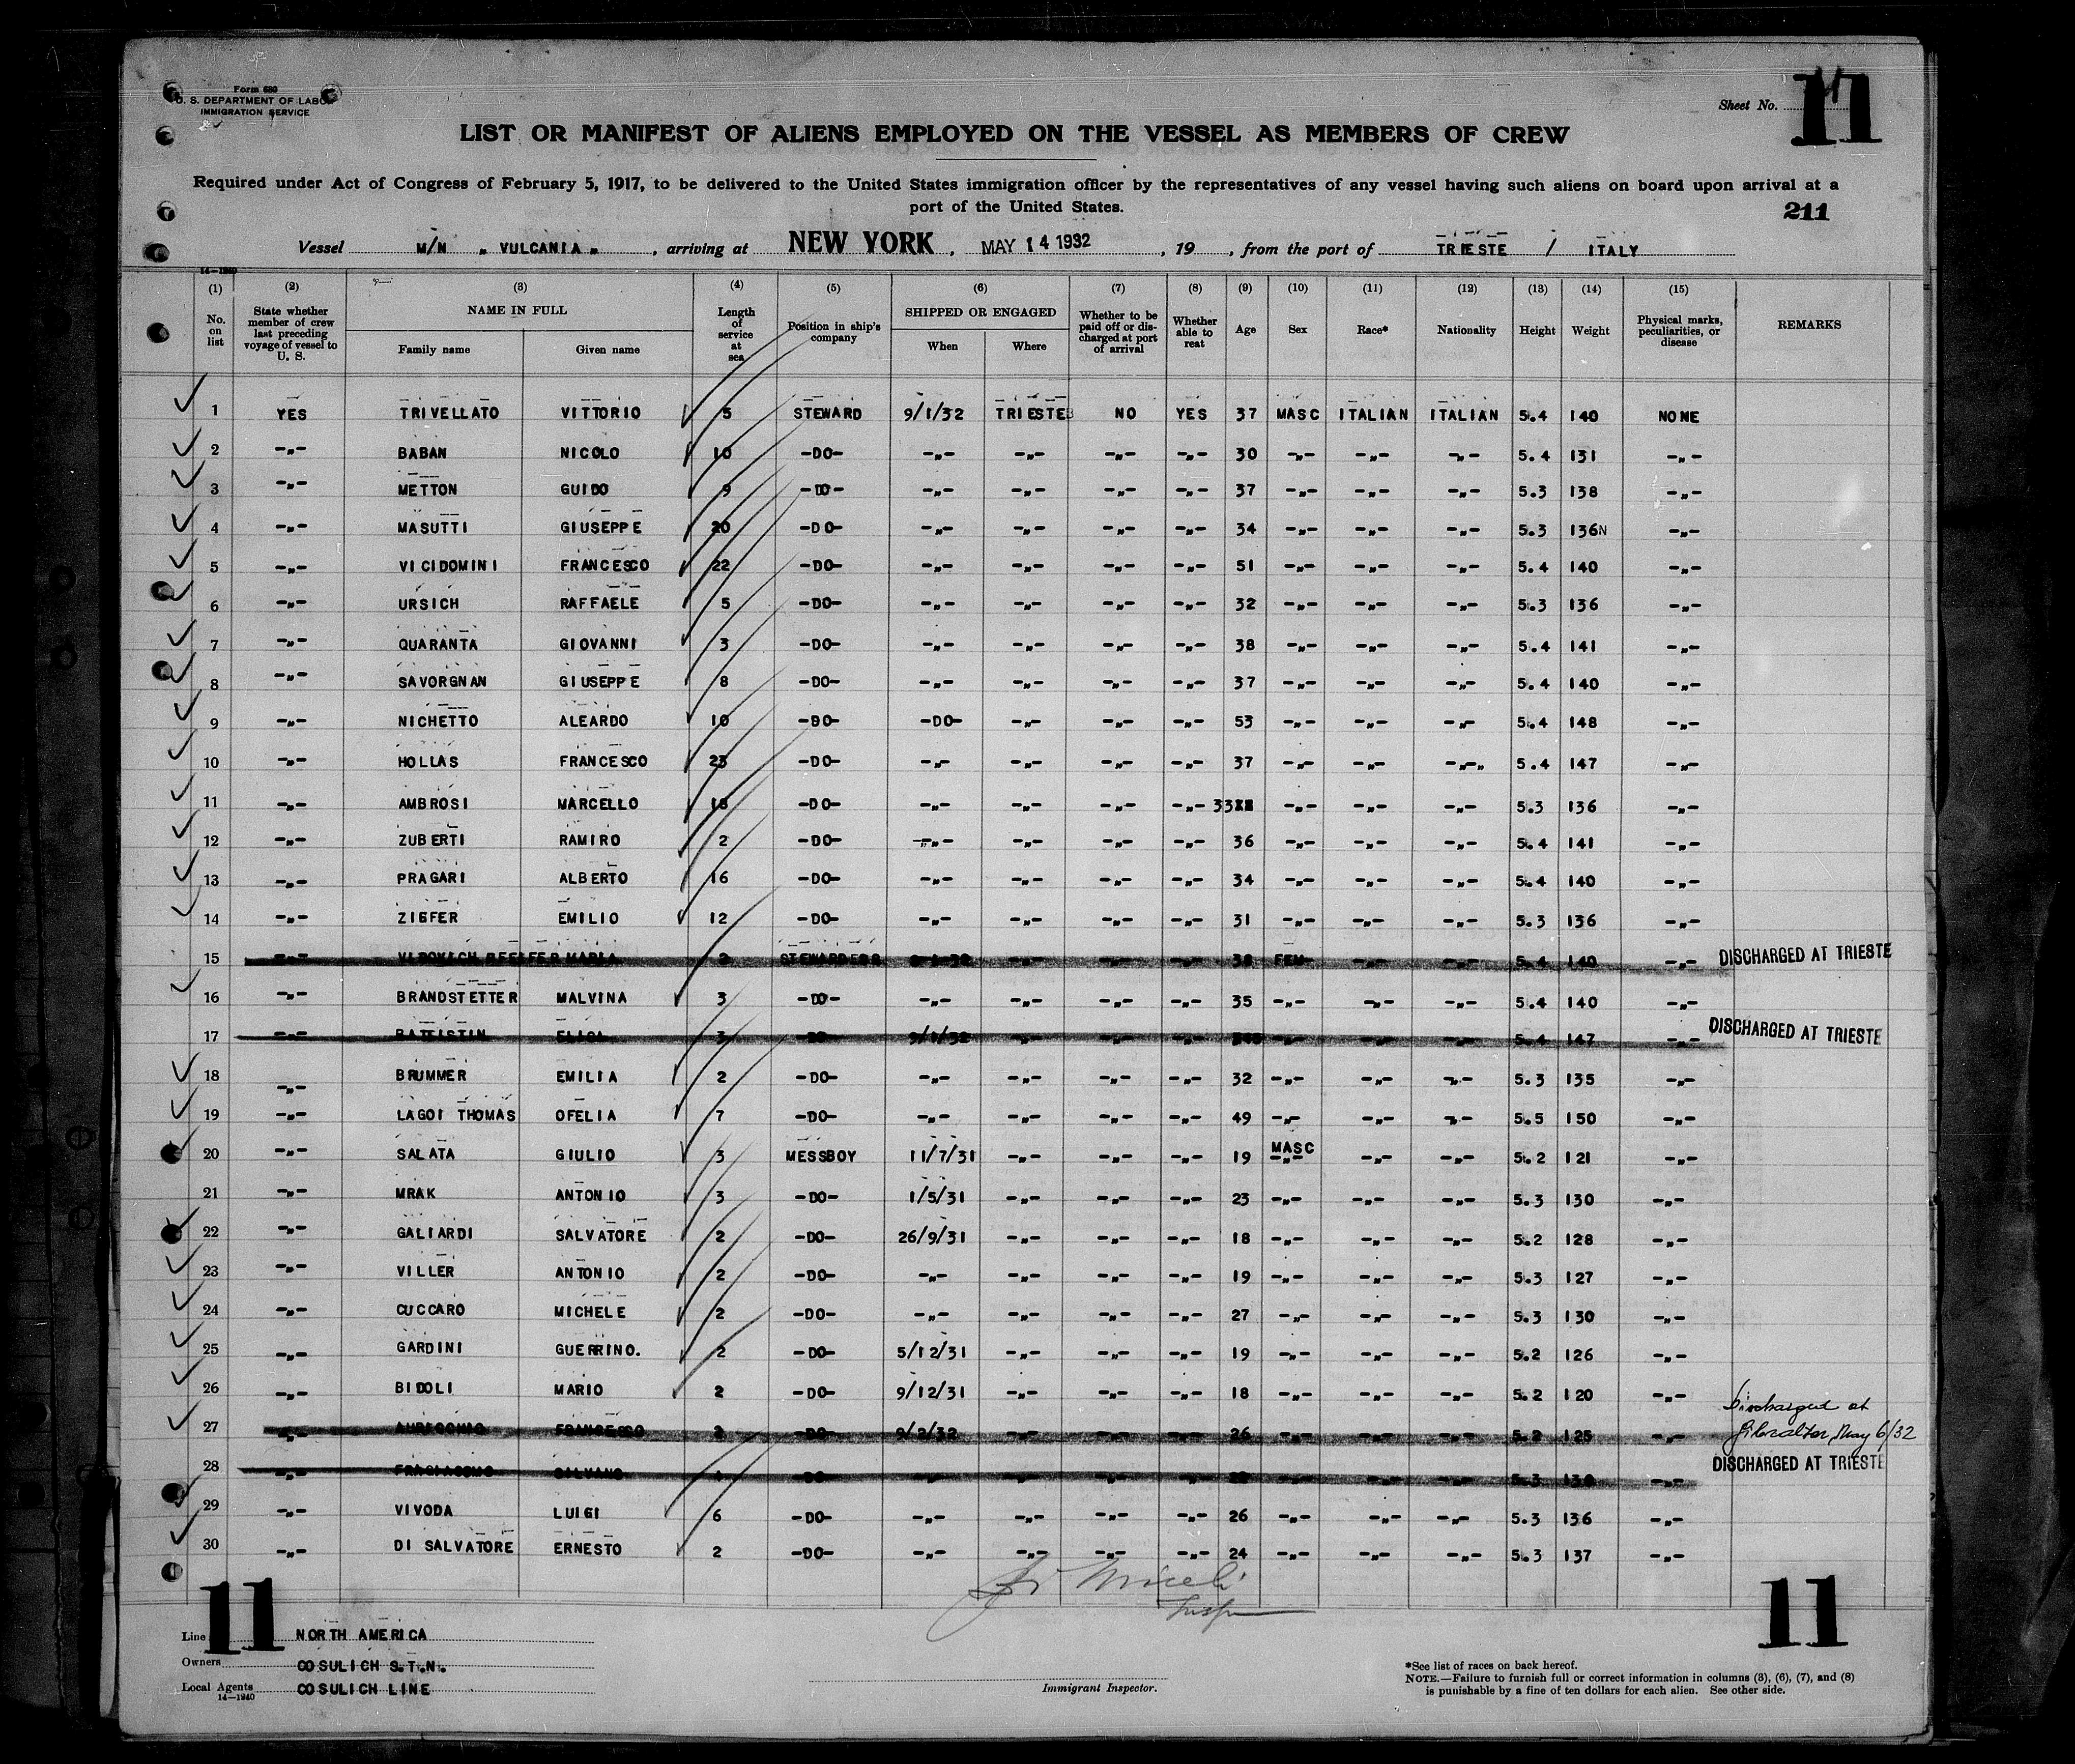 Form 680
U. S. DEPARTMENT OF LABOR
IMMIGRATION SERVICE
Sheet No. 11
LIST OR MANIFEST OF ALIENS EMPLOYED ON THE VESSEL AS MEMBERS OF CREW
Required under Act of Congress of February 5, 1917, to be delivered to the United States immigration officer by the representatives of any vessel having such aliens on board upon arrival at a
port of the United States.
211
Vessel M/N „ VULCANIA „ , arriving at NEW YORK , MAY 14 1932 , 19 , from the port of TRIESTE / ITALY
14-1240
(1) (2) (3) (4) (5) (6) (7) (8) (9) (10) (11) (12) (13) (14) (15)
No. on list State whether member of crew last preceding voyage of vessel to U. S. NAME IN FULL Family name Given name Length of service at sea Position in ship's company SHIPPED OR ENGAGED When Where Whether to be paid off or discharged at port of arrival Whether able to reat Age Sex Race* Nationality Height Weight Physical marks, peculiarities, or disease REMARKS
1 YES TRIVELLATO VITTORIO 5 STEWARD 9/1/32 TRIESTE NO YES 37 MASC ITALIAN ITALIAN 5.4 140 NONE
2 -„- BABAN NICOLO 10 -DO- -„- -„- -„- -„- 30 -„- -„- -„- 5.4 131 -„-
3 -„- METTON GUIDO 9 -DO- -„- -„- -„- -„- 37 -„- -„- -„- 5.3 138 -„-
4 -„- MASUTTI GIUSEPPE 20 -DO- -„- -„- -„- -„- 34 -„- -„- -„- 5.3 136N -„-
5 -„- VICIDOMINI FRANCESCO 22 -DO- -„- -„- -„- -„- 51 -„- -„- -„- 5.4 140 -„-
6 -„- URSICH RAFFAELE 5 -DO- -„- -„- -„- -„- 32 -„- -„- -„- 5.3 136 -„-
7 -„- QUARANTA GIOVANNI 3 -DO- -„- -„- -„- -„- 38 -„- -„- -„- 5.4 141 -„-
8 -„- SAVORGNAN GIUSEPPE 8 -DO- -„- -„- -„- -„- 37 -„- -„- -„- 5.4 140 -„-
9 -„- NICHETTO ALEARDO 10 -DO- -DO- -„- -„- -„- 53 -„- -„- -„- 5.4 148 -„-
10 -„- HOLLAS FRANCESCO 23 -DO- -„- -„- -„- -„- 37 -„- -„- -„-„ 5.4 147 -„-
11 -„- AMBROSI MARCELLO 18 -DO- -„- -„- -„- -„- 33 -„- -„- -„- 5.3 136 -„-
12 -„- ZUBERTI RAMIRO 2 -DO- -„- -„- -„- -„- 36 -„- -„- -„- 5.4 141 -„-
13 -„- PRAGARI ALBERTO 16 -DO- -„- -„- -„- -„- 34 -„- -„- -„- 5.4 140 -„-
14 -„- ZIGFER EMILIO 12 -DO- -„- -„- -„- -„- 31 -„- -„- -„- 5.3 136 -„-
15 -„- MARIA 2 STEWARDESS -„- -„- -„- 38 FEM -„- -„- 5.4 140 -„- DISCHARGED AT TRIESTE
16 -„- BRANDSTETTER MALVINA 3 -DO- -„- -„- -„- -„- 35 -„- -„- -„- 5.4 140 -„-
17 -„- BATTISTIN ELISA 3 -DO- 9/1/32 -„- -„- -„- -„- -„- -„- 5.4 147 -„- DISCHARGED AT TRIESTE
18 -„- BRUMMER EMILIA 2 -DO- -„- -„- -„- -„- 32 -„- -„- -„- 5.3 135 -„-
19 -„- LAGOI THOMAS OFELIA 7 -DO- -„- -„- -„- -„- 49 -„- -„- -„- 5.5 150 -„-
20 -„- SALATA GIULIO 3 MESSBOY 11/7/31 -„- -„- -„- 19 MASC -„- -„- -„- 5.2 121 -„-
21 -„- MRAK ANTONIO 3 -DO- 1/5/31 -„- -„- -„- 23 -„- -„- -„- 5.3 130 -„-
22 -„- GALIARDI SALVATORE 2 -DO- 26/9/31 -„- -„- -„- 18 -„- -„- -„- 5.2 128 -„-
23 -„- VILLER ANTONIO 2 -DO- -„- -„- -„- -„- 19 -„- -„- -„- 5.3 127 -„-
24 -„- CUCCARO MICHELE 2 -DO- -„- -„- -„- -„- 27 -„- -„- -„- 5.3 130 -„-
25 -„- GARDINI GUERRINO. 2 -DO- 5/12/31 -„- -„- -„- 19 -„- -„- -„- 5.2 126 -„-
26 -„- BIDOLI MARIO 2 -DO- 9/12/31 -„- -„- -„- 18 -„- -„- -„- 5.2 120 -„-
27 -„- FRANCESCO 2 -DO- 9/2/32 -„- -„- -„- 26 -„- -„- -„- 5.2 125 -„- Discharged at Gibralter, May 6/32
28 -„- FRAGIACOMO SILVANO -DO- -„- -„- -„- -„- -„- -„- -„- 5.3 130 -„- DISCHARGED AT TRIESTE
29 -„- VIVODA LUIGI 6 -DO- -„- -„- -„- -„- 26 -„- -„- -„- 5.3 136 -„-
30 -„- DI SALVATORE ERNESTO 2 -DO- -„- -„- -„- -„- 24 -„- -„- -„- 5.3 137 -„-
11 11
Line NORTH AMERICA
Owners COSULICH S.T.N.
Local Agents COSULICH LINE
14-1240
Immigrant Inspector.
*See list of races on back hereof.
NOTE.—Failure to furnish full or correct information in columns (3), (6), (7), and (8)
is punishable by a fine of ten dollars for each alien. See other side.